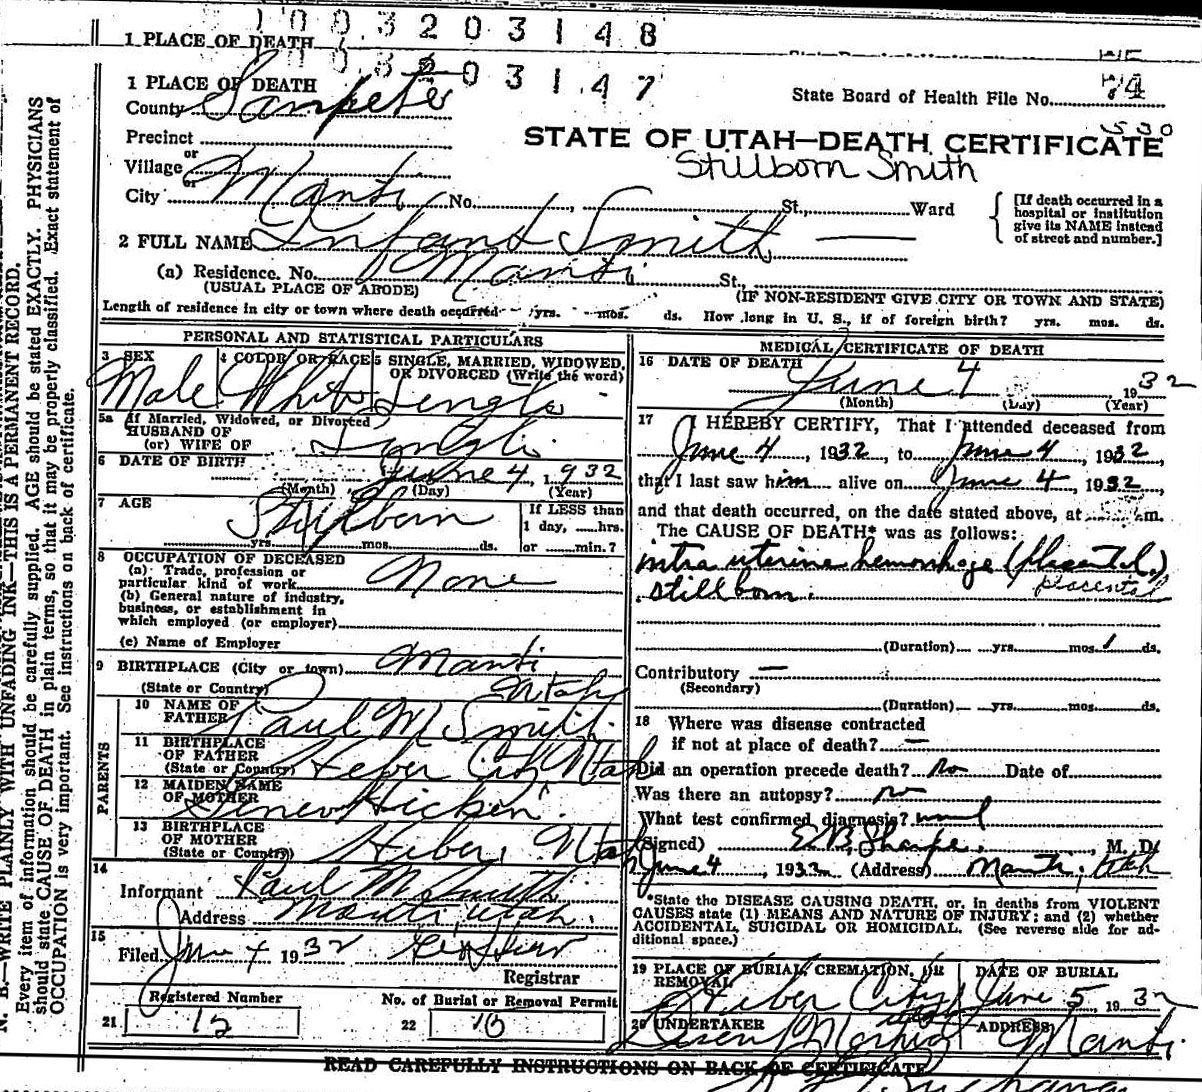 1003203148
1 PLACE OF DEATH
03147
1 PLACE OF DEATH
County Sanpete
State Board of Health File No. 74
530
Precinct
STATE OF UTAH—DEATH CERTIFICATE
Stillborn Smith
or
Village
or
City Manti No. , St., Ward
[If death occurred in a hospital or institution give its NAME instead of street and number.]
2 FULL NAME Infant Smith
(a) Residence. No. Manti St.,
(USUAL PLACE OF ABODE) (IF NON-RESIDENT GIVE CITY OR TOWN AND STATE)
Length of residence in city or town where death occurred yrs. mos. ds. How long in U. S., if of foreign birth? yrs. mos. ds.
PERSONAL AND STATISTICAL PARTICULARS
3 SEX 4 COLOR OR RACE 5 SINGLE, MARRIED, WIDOWED, OR DIVORCED (Write the word)
Male White Single
5a If Married, Widowed, or Divorced
HUSBAND OF
(or) WIFE OF Single
6 DATE OF BIRTH June 4, 1932
(Month) (Day) (Year)
7 AGE Stillborn If LESS than
1 day, hrs.
yrs. mos. ds. or min.?
8 OCCUPATION OF DECEASED
(a) Trade, profession or
particular kind of work None
(b) General nature of industry,
business, or establishment in
which employed (or employer)
(c) Name of Employer
9 BIRTHPLACE (City or town) Manti
(State or Country) Utah
PARENTS
10 NAME OF
FATHER Paul M Smith
11 BIRTHPLACE
OF FATHER
(State or Country) Heber City Utah
12 MAIDEN NAME
OF MOTHER Hicken
13 BIRTHPLACE
OF MOTHER
(State or Country) Heber, Utah
14
Informant Paul M Smith
Address Manti, Utah.
15
Filed June 4 1932
Registrar
Registered Number No. of Burial or Removal Permit
21 12 22 10
MEDICAL CERTIFICATE OF DEATH
16 DATE OF DEATH June 4 1932
(Month) (Day) (Year)
17 I HEREBY CERTIFY, That I attended deceased from
June 4, 1932, to June 4, 1932,
that I last saw him alive on June 4, 1932,
and that death occurred, on the date stated above, at m.
The CAUSE OF DEATH* was as follows:
intra uterine hemorrhage (placental.)
stillborn. placental
(Duration) yrs. mos. 1 ds.
Contributory —
(Secondary)
(Duration) yrs. mos. ds.
18 Where was disease contracted
if not at place of death? —
Did an operation precede death? no Date of
Was there an autopsy? no
What test confirmed diagnosis?
(Signed) E. B. Sharpe., M. D.
June 4, 1932 (Address) Manti, Utah
*State the DISEASE CAUSING DEATH, or, in deaths from VIOLENT
CAUSES state (1) MEANS AND NATURE OF INJURY; and (2) whether
ACCIDENTAL, SUICIDAL OR HOMICIDAL. (See reverse side for ad-
ditional space.)
19 PLACE OF BURIAL, CREMATION, OR REMOVAL DATE OF BURIAL
Heber City June 5, 1932
20 UNDERTAKER ADDRESS
Manti.
READ CAREFULLY INSTRUCTIONS ON BACK OF CERTIFICATE
N. B.—WRITE PLAINLY WITH UNFADING INK—THIS IS A PERMANENT RECORD.
Every item of information should be carefully supplied. AGE should be stated EXACTLY. PHYSICIANS
should state CAUSE OF DEATH in plain terms, so that it may be properly classified. Exact statement of
OCCUPATION is very important. See instructions on back of certificate.